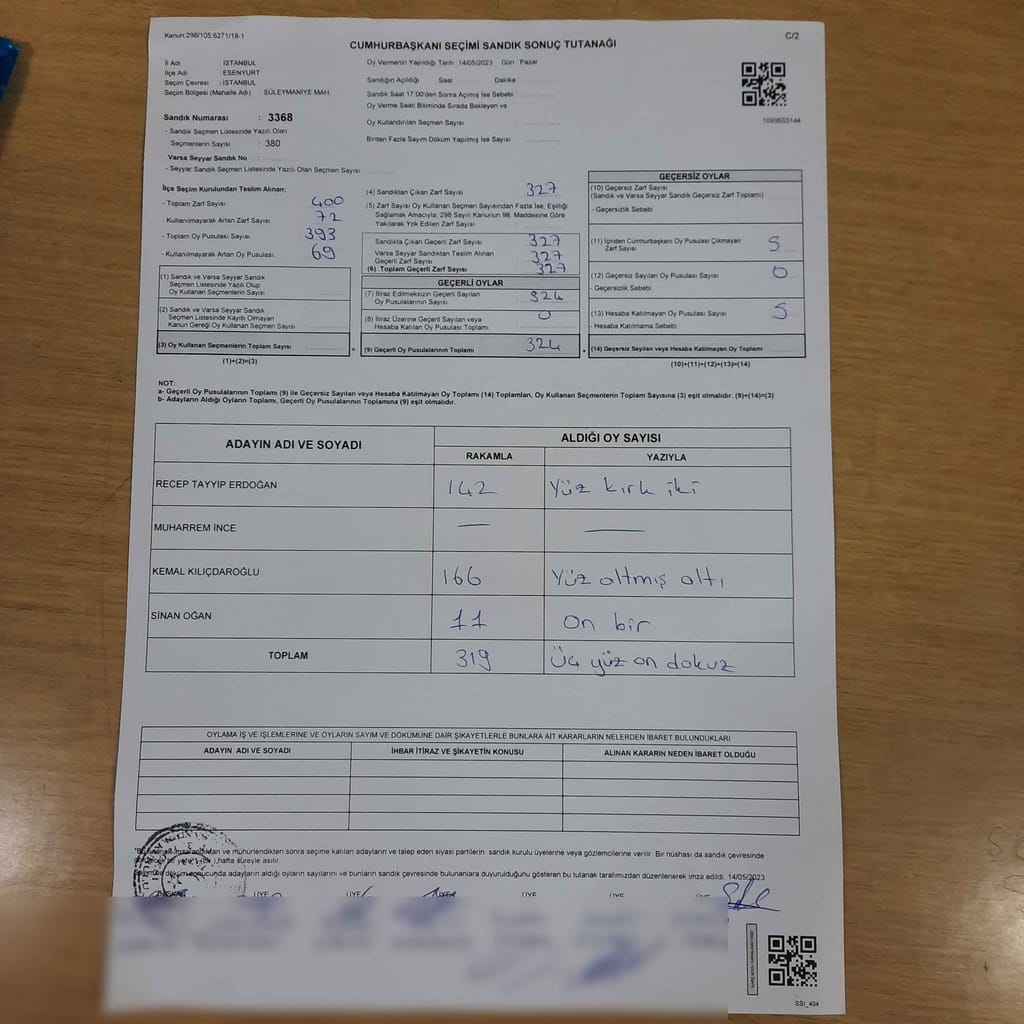 Kanun:298/105;6271/18-1
C/2
CUMHURBAŞKANI SEÇİMİ SANDIK SONUÇ TUTANAĞI
İl Adı : İSTANBUL
İlçe Adı : ESENYURT
Seçim Çevresi : İSTANBUL
Seçim Bölgesi (Mahalle Adı) SÜLEYMANİYE MAH.
Sandık Numarası : 3368
- Sandık Seçmen Listesinde Yazılı Olan
Seçmenlerin Sayısı : 380
Varsa Seyyar Sandık No :
- Seyyar Sandık Seçmen Listesinde Yazılı Olan Seçmen Sayısı
Oy Vermenin Yapıldığı Tarih 14/05/2023 Gün Pazar
Sandığın Açıldığı Saat Dakika
Sandık Saat 17:00'den Sonra Açılmış İse Sebebi
Oy Verme Saati Bitiminde Sırada Bekleyen ve
Oy Kullandırılan Seçmen Sayısı
Birden Fazla Sayım Döküm Yapılmış İse Sayısı
1093655144
İlçe Seçim Kurulundan Teslim Alınan;
- Toplam Zarf Sayısı 400
- Kullanılmayarak Artan Zarf Sayısı 72
- Toplam Oy Pusulası Sayısı 393
- Kullanılmayarak Artan Oy Pusulası 69
(1) Sandık ve Varsa Seyyar Sandık
Seçmen Listesinde Yazılı Olup
Oy Kullanan Seçmenlerin Sayısı
(2) Sandık ve Varsa Seyyar Sandık
Seçmen Listesinde Kayıtlı Olmayan
Kanun Gereği Oy Kullanan Seçmen Sayısı
(3) Oy Kullanan Seçmenlerin Toplam Sayısı
(1)+(2)=(3)
(4) Sandıktan Çıkan Zarf Sayısı 327
(5) Zarf Sayısı Oy Kullanan Seçmen Sayısından Fazla İse, Eşitliği
Sağlamak Amacıyla; 298 Sayılı Kanunun 98. Maddesine Göre
Yakılarak Yok Edilen Zarf Sayısı
Sandıkta Çıkan Geçerli Zarf Sayısı 327
Varsa Seyyar Sandıktan Teslim Alınan
Geçerli Zarf Sayısı 327
(6) Toplam Geçerli Zarf Sayısı 327
GEÇERLİ OYLAR
(7) İtiraz Edilmeksizin Geçerli Sayılan
Oy Pusulalarının Sayısı 324
(8) İtiraz Üzerine Geçerli Sayılan veya
Hesaba Katılan Oy Pusulası Toplamı 0
= (9) Geçerli Oy Pusulalarının Toplamı 324
GEÇERSİZ OYLAR
(10) Geçersiz Zarf Sayısı
(Sandık ve Varsa Seyyar Sandık Geçersiz Zarf Toplamı)
- Geçersizlik Sebebi
(11) İçinden Cumhurbaşkanı Oy Pusulası Çıkmayan
Zarf Sayısı 5
(12) Geçersiz Sayılan Oy Pusulası Sayısı 0
- Geçersizlik Sebebi
(13) Hesaba Katılmayan Oy Pusulası Sayısı 5
- Hesaba Katılmama Sebebi
+ (14) Geçersiz Sayılan veya Hesaba Katılmayan Oy Toplamı
(10)+(11)+(12)+(13)=(14)
NOT:
a- Geçerli Oy Pusulalarının Toplamı (9) ile Geçersiz Sayılan veya Hesaba Katılmayan Oy Toplamı (14) Toplamları, Oy Kullanan Seçmenlerin Toplam Sayısına (3) eşit olmalıdır. (9)+(14)=(3)
b- Adayların Aldığı Oyların Toplamı, Geçerli Oy Pusulalarının Toplamına (9) eşit olmalıdır.
ADAYIN ADI VE SOYADI ALDIĞI OY SAYISI
RAKAMLA YAZIYLA
RECEP TAYYİP ERDOĞAN 142 Yüz kırk iki
MUHARREM İNCE — —
KEMAL KILIÇDAROĞLU 166 Yüz altmış altı
SİNAN OĞAN 11 On bir
TOPLAM 319 Üç yüz on dokuz
OYLAMA İŞ VE İŞLEMLERİNE VE OYLARIN SAYIM VE DÖKÜMÜNE DAİR ŞİKAYETLERLE BUNLARA AİT KARARLARIN NELERDEN İBARET BULUNDUKLARI
ADAYIN ADI VE SOYADI İHBAR İTİRAZ VE ŞİKAYETİN KONUSU ALINAN KARARIN NEDEN İBARET OLDUĞU
ve mühürlendikten sonra seçime katılan adayların ve talep eden siyasi partilerin sandık kurulu üyelerine veya gözlemcilerine verilir. Bir nüshası da sandık çevresinde
hafta süreyle asılır.
döküm sonucunda adayların aldığı oyların sayılarını ve bunların sandık çevresinde bulunanlara duyurulduğunu gösteren bu tutanak tarafımızdan düzenlenerek imza edildi. 14/05/2023
BAŞKAN ÜYE ÜYE ÜYE ÜYE ÜYE ÜYE
SSI_404